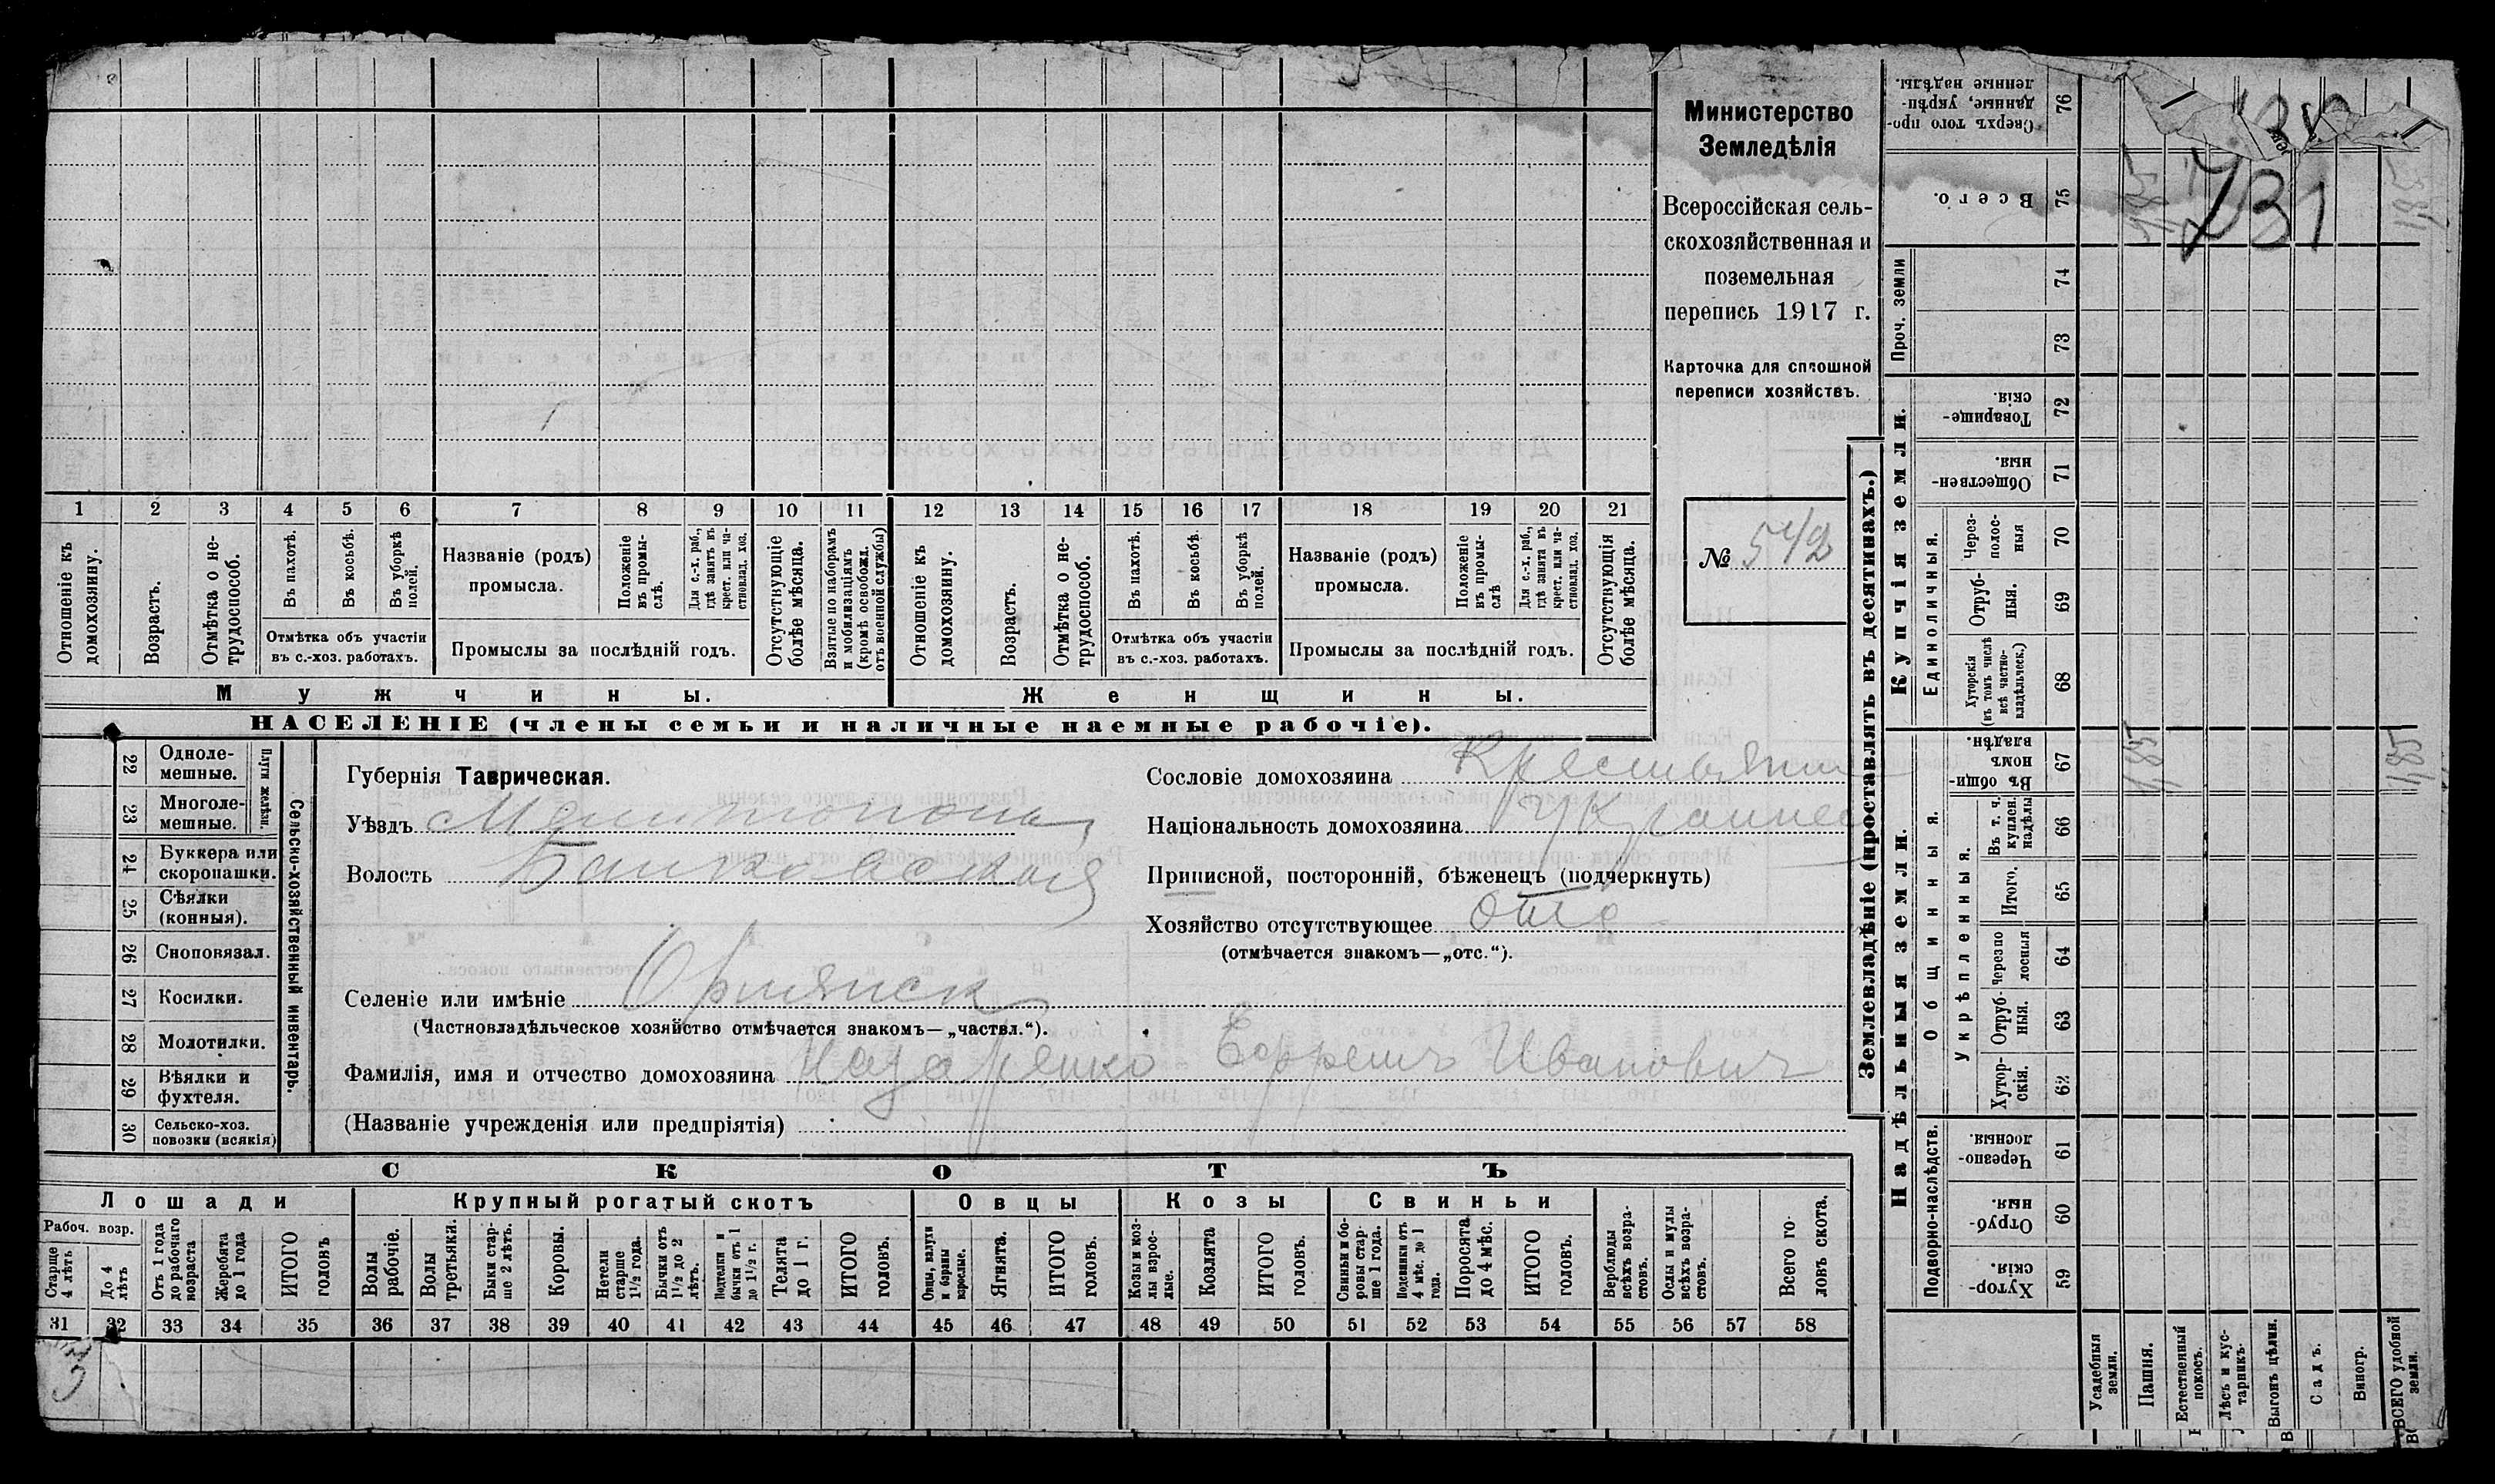 Министерство
Земледѣлія
Всероссійская сель-
скохозяйственная и
поземельная
перепись 1917 г.
Карточка для сплошной
переписи хозяйствъ.
№ 542
1 2 3 4 5 6 7 8 9 10 11 12 13 14 15 16 17 18 19 20 21
Отношеніе къ домохозяину.
Возрастъ.
Отмѣтка о не-трудоспособ.
Въ пахотѣ.
Въ косьбѣ.
Въ уборкѣ полей.
Отмѣтка объ участіи
въ с.-хоз. работахъ.
Названіе (родъ)
промысла.
Положеніе въ промы-слѣ.
Для с.-х. раб., гдѣ занятъ въ крест. или ча-стновлад. хоз.
Промыслы за послѣдній годъ.
Отсутствующіе болѣе мѣсяца.
Взятые по наборамъ и мобилизаціямъ (кромѣ освобожд. отъ военной службы)
Отношеніе къ домохозяину.
Возрастъ.
Отмѣтка о не-трудоспособ.
Въ пахотѣ.
Въ косьбѣ.
Въ уборкѣ полей.
Отмѣтка объ участіи
въ с.-хоз. работахъ.
Названіе (родъ)
промысла.
Положеніе въ промы-слѣ
Для с.-х. раб., гдѣ занята въ крест. или ча-стновлад. хоз.
Промыслы за послѣдній годъ.
Отсутствующія болѣе мѣсяца.
Мужчины.
Женщины.
НАСЕЛЕНІЕ (члены семьи и наличные наемные рабочіе).
Сельско-хозяйственный инвентарь.
Плуги желѣзн.
22 Одноле-мешные.
23 Многоле-мешные.
24 Буккера или скоропашки.
25 Сѣялки (конныя).
26 Сноповязал.
27 Косилки.
28 Молотилки.
29 Вѣялки и фухтеля.
30 Сельско-хоз. повозки (всякія)
Губернія Таврическая.
Уѣздъ
Волость
Селеніе или имѣніе
(Частновладѣльческое хозяйство отмѣчается знакомъ—„частвл.“).
Сословіе домохозяина Крестьянин
Національность домохозяина Украинец
Приписной, посторонній, бѣженецъ (подчеркнуть)
Хозяйство отсутствующее отс
(отмѣчается знакомъ—„отс.“).
Фамилія, имя и отчество домохозяина Назаренко Ефремъ Ивановичъ
(Названіе учрежденія или предпріятія)
СКОТЪ
Лошади
Крупный рогатый скотъ
Овцы
Козы
Свиньи
Рабоч. возр.
Старше 4 лѣтъ
До 4 лѣтъ
Отъ 1 года до рабочаго возраста
Жеребята до 1 года
ИТОГО головъ
Волы рабочіе.
Волы третьяки.
Быки стар-ше 2 лѣтъ.
Коровы.
Нетели старше 1½ года.
Бычки отъ 1½ до 2 лѣтъ.
Подтелки и бычки отъ 1 до 1½ г.
Телята до 1 г.
ИТОГО головъ.
Овцы, валухи и бараны взрослые.
Ягнята.
ИТОГО головъ.
Козы и коз-лы взрос-лые.
Козлята
ИТОГО головъ.
Свиньи и бо-ровы стар-ше 1 года.
Подсвинки отъ 4 мѣс. до 1 года.
Поросята до 4 мѣс.
ИТОГО головъ.
Верблюды всѣхъ возра-стовъ.
Ослы и мулы всѣхъ возра-стовъ.
Всего го-ловъ скота.
31 32 33 34 35 36 37 38 39 40 41 42 43 44 45 46 47 48 49 50 51 52 53 54 55 56 57 58
3
Землевладѣніе (проставлять въ десятинахъ.)
Купчія земли.
Надѣльныя земли.
Сверхъ того про-данные, укрѣп-ленные надѣлы. 76
Всего. 75
Проч. земли
74
73
Товарище-скія. 72
Обществен-ныя. 71
Единоличныя.
Через-полос-ныя 70
Отруб-ныя. 69
Хуторскія (въ томъ числѣ всѣ частно-владѣльческ.) 68
Общинныя.
Въ общин-номъ владѣн. 67
Укрѣпленныя.
Въ т. ч. куплен. надѣлы 66
Итого. 65
Черезпо-лосныя 64
Отруб-ныя. 63
Хутор-скія. 62
Подворно-наслѣдств.
Черезпо-лосныя. 61
Отруб-ныя. 60
Хутор-скія. 59
Усадебныя земли.
Пашня.
Естественный покосъ.
Лѣсъ и кус-тарникъ.
Выгонъ цѣлин.
Садъ.
Виногр.
ВСЕГО удобной земли.
731
1,85
1,85
1,85
1,85